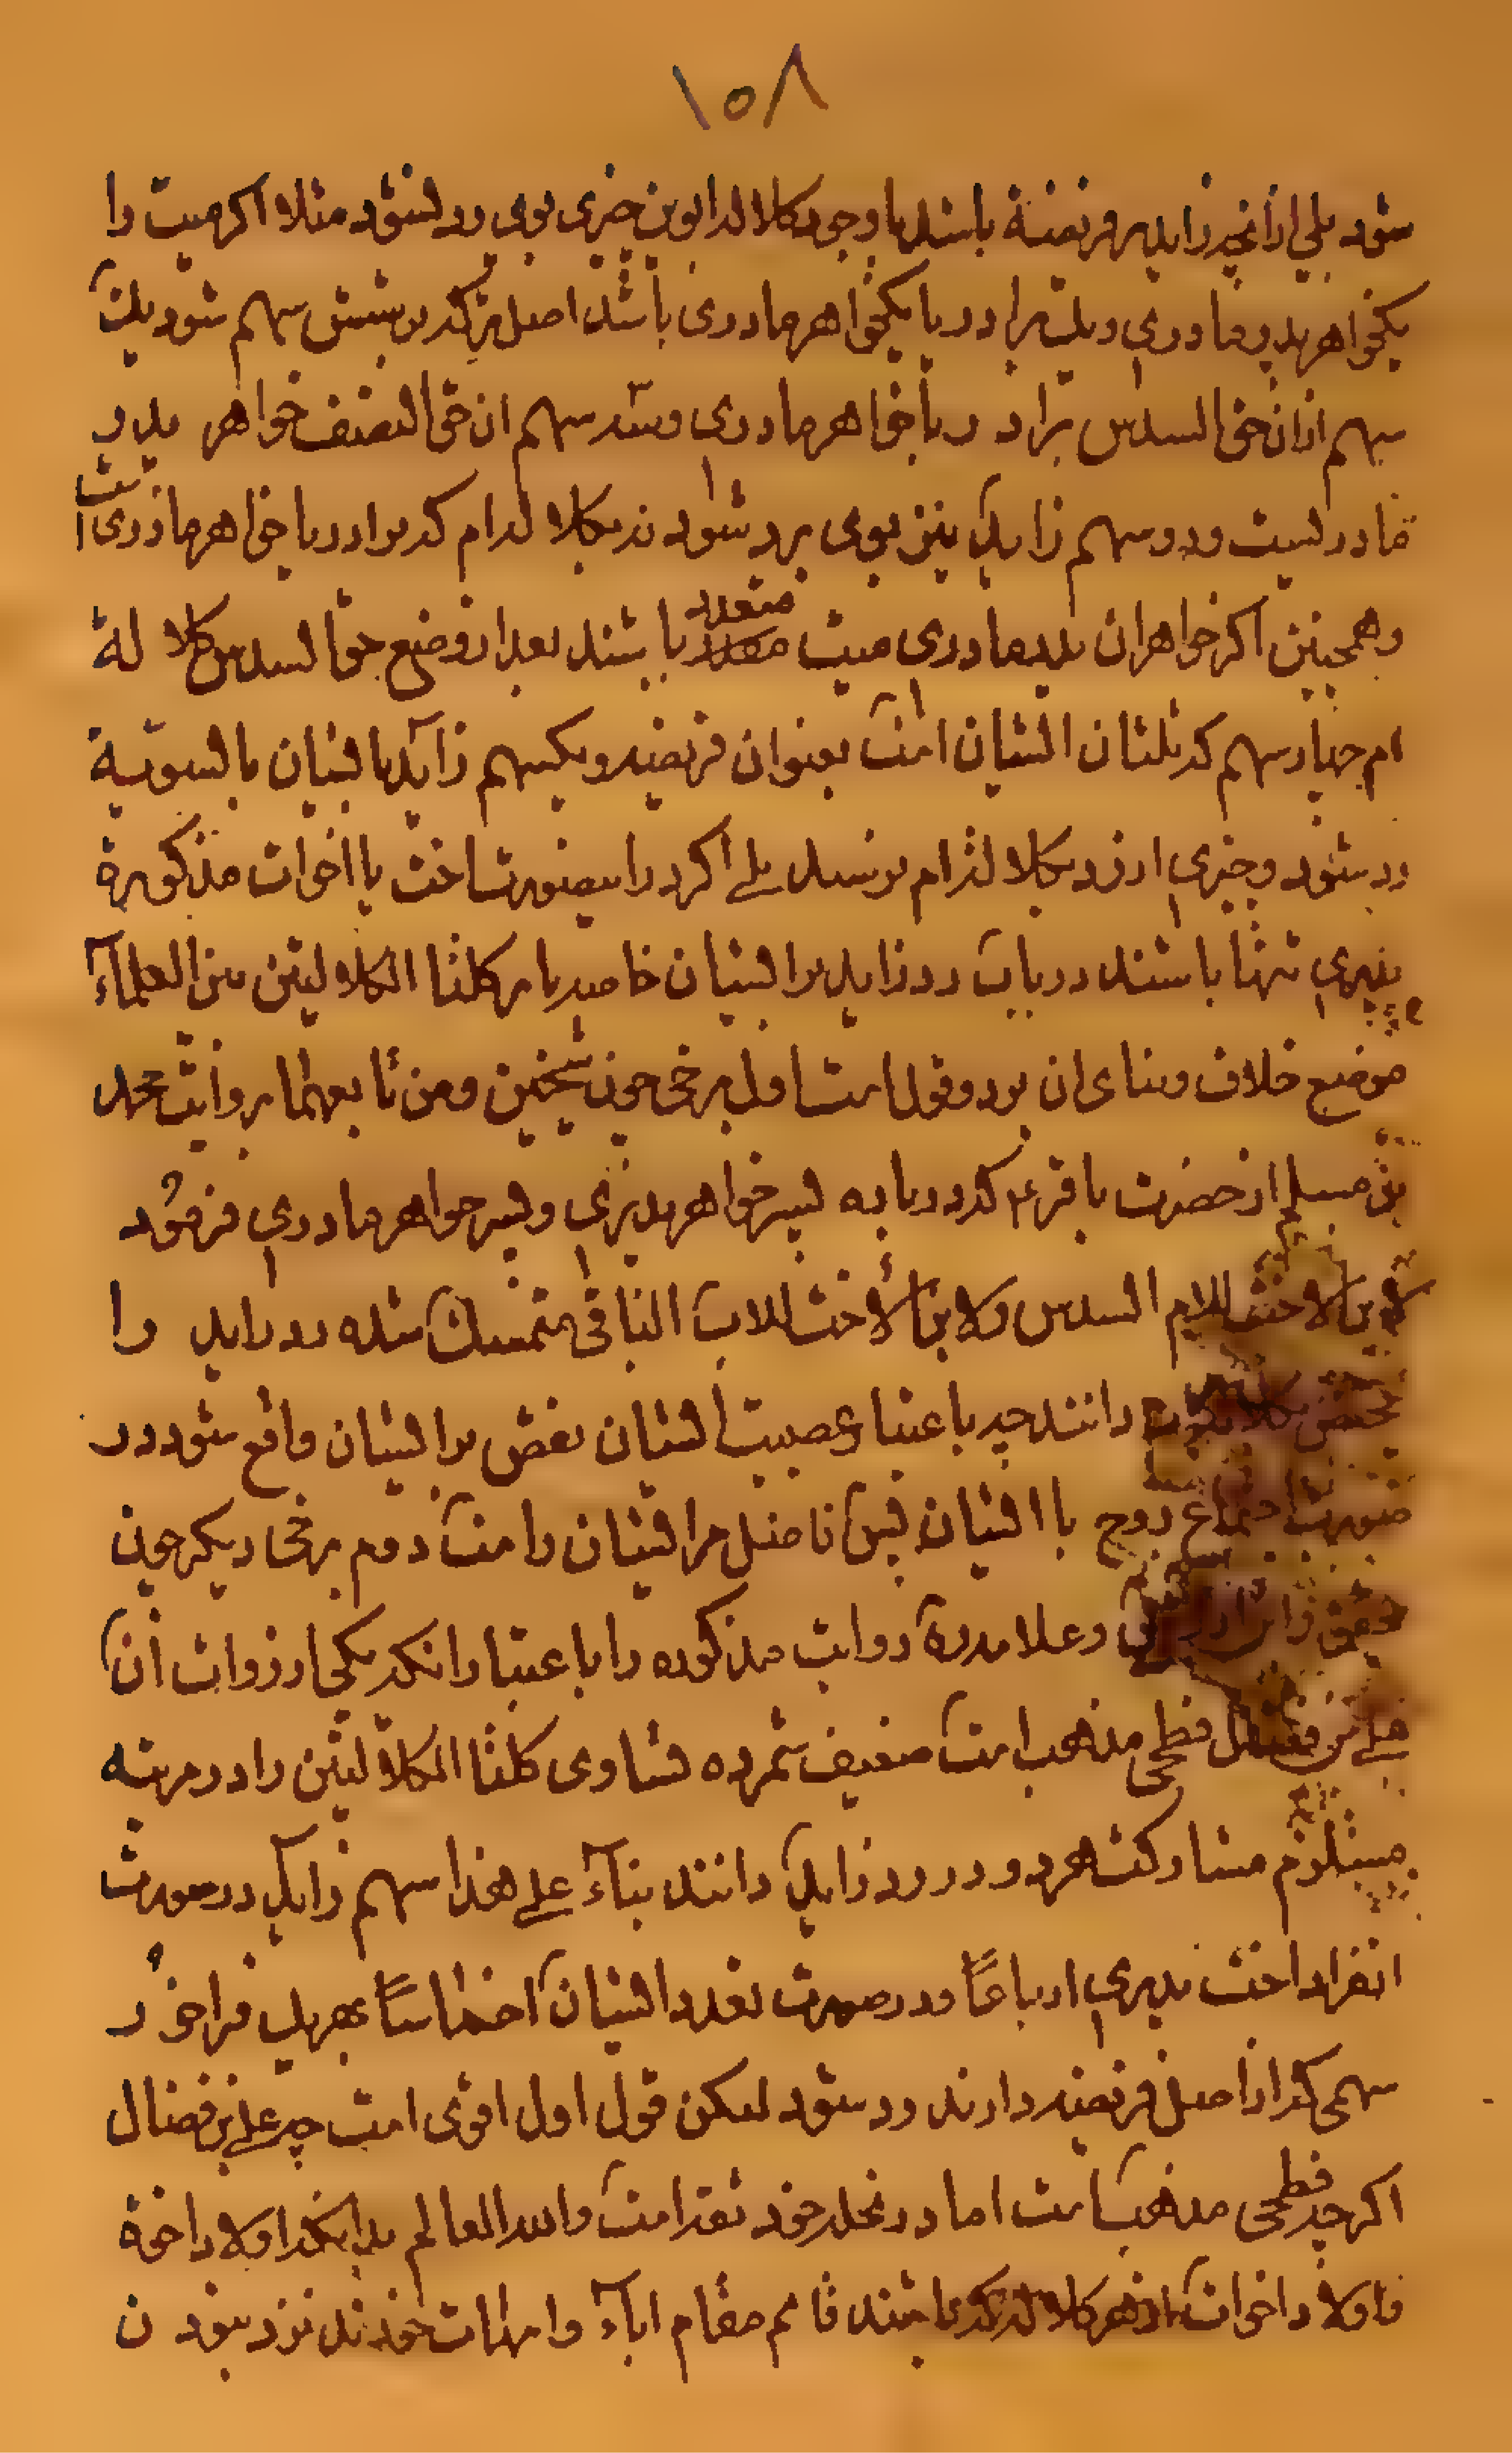 ١٠٨
شود بلی از انچه زاید بر فریضه باشد با وجود کلاله ابوین چیزی بوی رد نشود مثلا اکر میت را
یکخواهر پدر و مادری و یک برادر یا یکخواهر مادری باشد اصل ترکه بر شش سهم شود یک
سهم از ان حق السدس برادر یا خواهر مادری و سه سهم ان حق النصف خواهر پدر و
مادریست و دو سهم زاید نیز بوی رد شود نه بکلاله ام که برادر یا خواهر مادری است
و همچنین اکر خواهران پدر مادری میت متعدد باشند بعد از وضع حق السدس کلاله
ام چهار سهم که ثلثان ایشان است بعنوان فریضه و یکسهم زاید با ایشان بالسویة
رد شود و چیزی از رد بکلاله ام نرسد بلی اکر در اینصورت اخت یا اخوات مذکوره
پدری تنها باشند در باب رد زاید بر ایشان خاصه یا بر کلتا الکلالتین بین العلمآء
موضع خلاف و بنای ان بر دو قول است اول برخی چون شیخین و من تابعهما بروایت محمد
بن مسلم از حضرت باقر ع که در باره پسر خواهر پدری و پسر خواهر مادری فرمود
لابن الاخت للام السدس ولابن الأخت للاب الباقی متمسک شده رد زاید را
مختص بکلاله دانند چه باعتبار عصبیت ایشان نقص بر ایشان واقع شود در
صورت اجتماع زوج با ایشان پس فاضل مر ایشان را است دوم برخی دیکر چون
محقق و علامه ره روایت مذکوره را باعتبار انکه یکی از رواة ان
علی بن فضال فطحی مذهب است ضعیف شمرده تساوی کلتا الکلالتین را در مرتبه
مستلزم مشارکت هر دو در رد زاید دانند بنآء علی هذا سهم زاید در صورت
انفراد اخت پدری ارباعاً و در صورت تعدد ایشان اخماساً بهر یک فراخور
سهمی که از اصل فریضه دارند رد شود لیکن قول اول اقوی است چه علی بن فضال
اکرچه فطحی مذهب است اما در نحله خود ثقه است والله العالم بدانکه اولاد اخوة
و اولاد اخوات از هر کلاله که باشند قائم مقام ابآء و امهات خودند نزد نبود ن